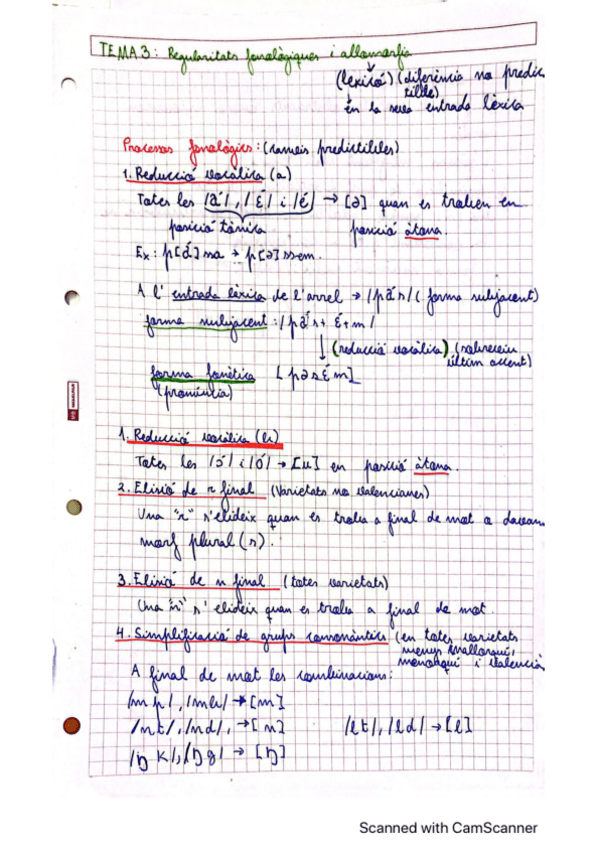 TEMA 3: Regularitats fonològiques i al·lomorfia
(lèxic) (diferència no predic
tible)
en la seva entrada lèxica
Processos fonològics: (canvis predictibles)
1. Reducció vocàlica (a)
Totes les /á/, /É/ i /é/ → [ə] quan es troben en
posició tònica posició àtona.
Ex: p[á]ssa → p[ə]ssem.
A l'entrada lèxica de l'arrel → /pás/ (forma subjacent)
forma subjacent: /pás + É + m/
↓ (reducció vocàlica) (sobreviu
últim accent)
forma fonètica [pəsÉm]
(pronúncia)
1. Reducció vocàlica (b)
Totes les /ɔ́/ i /ó/ → [u] en posició àtona.
2. Elisió de r final (Varietats no valencianes)
Una "r" s'elideix quan es troba a final de mot o davan
morf plural (s).
3. Elisió de n final (totes varietats)
Una "n" s'elideix quan es troba a final de mot.
4. Simplificació de grups consonàntics (en totes varietats
menys mallorquí,
menorquí i valencià
A final de mot les combinacions:
/mp/, /mb/ → [m]
/nt/, /nd/, → [n] /lt/, /ld/ → [l]
/ŋk/, /ŋg/ → [ŋ]
Scanned with CamScanner